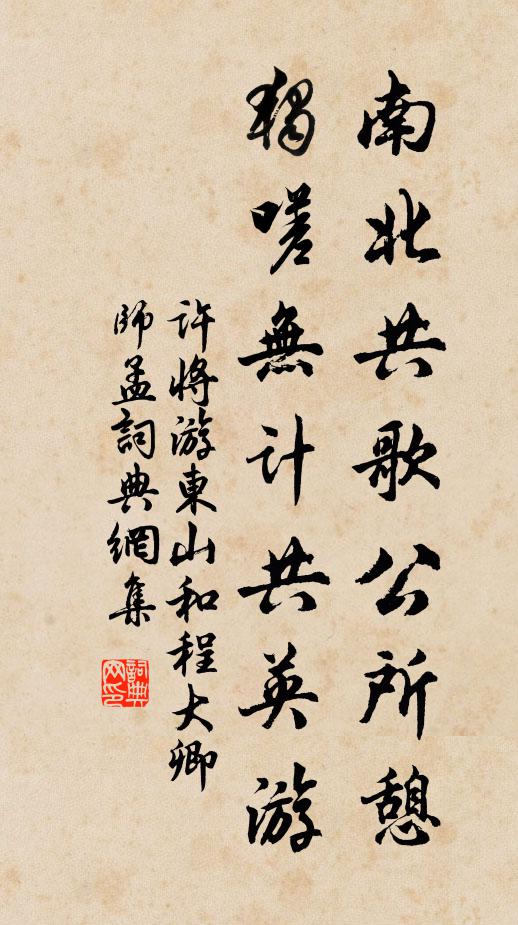 南北共歌公所憩
獨嗟無计共英游
许将游東山和程大卿
师孟詞典網集
詞典网印